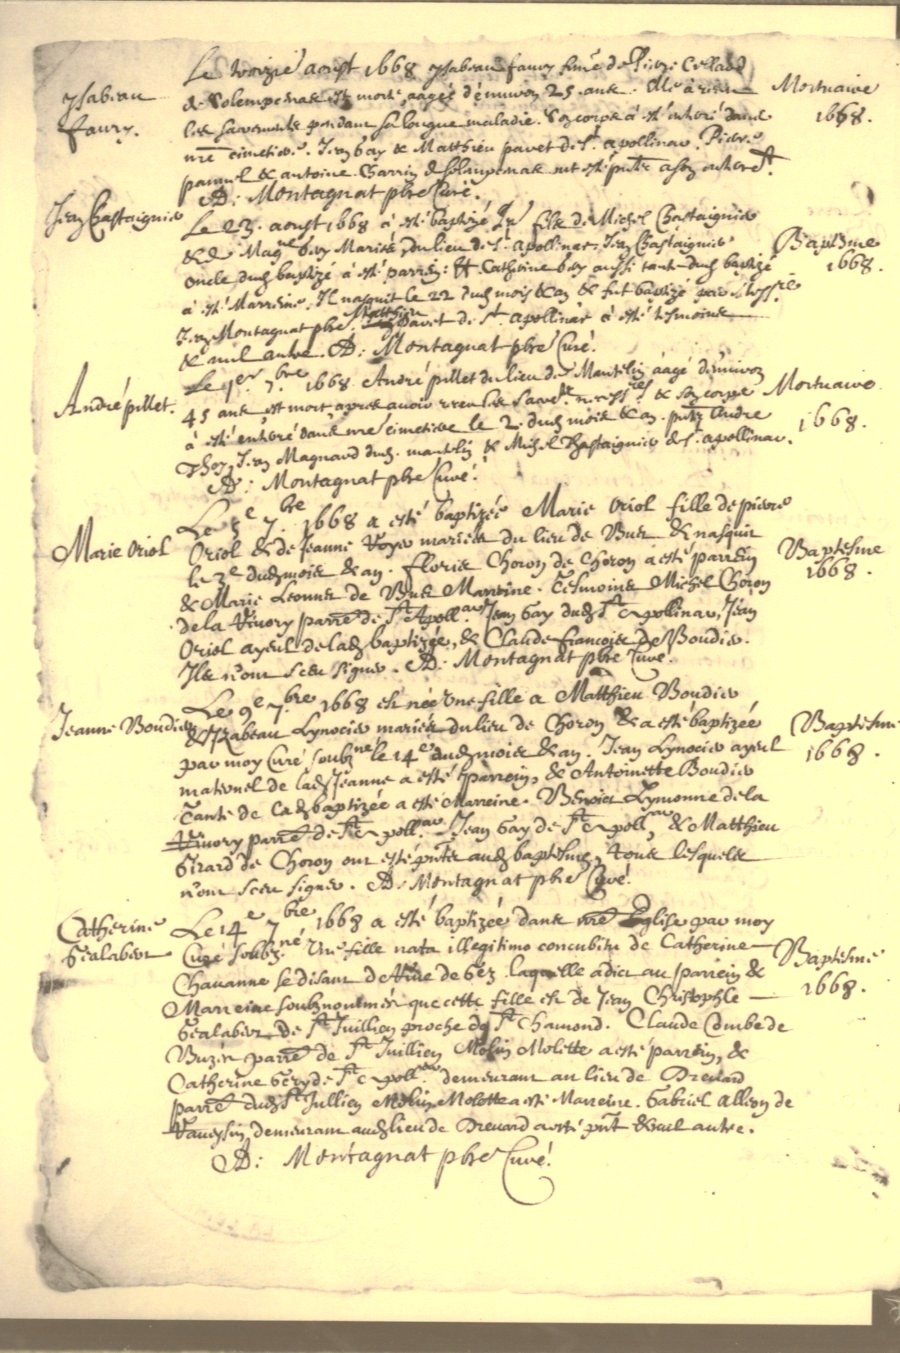 Ysabeau
faury.
Le aoust 1668 ysabeau faury de Pierre
de Solempenat est morte aagée d'environ 25. ans. Elle à
les sacremente pendant sa longue maladie. Son corps à esté enterré dans
nrẽ cimetiere. Jean Gay & Matthieu pavet de St. apollinar. Pierre
& antoine ont esté
A: Montagnat pbre Curé.
Mortuaire
1668.
Jean Chastaignier
Le 23. aoust 1668 à esté baptizé Jn fils de Michel Chastaignier
& de Magne Gay Mariés, du lieu de St. apollinar. Jean Chastaignier
oncle dud baptizé à esté parrein: Et Catherine Gay aussi tante dud baptizé
à esté Marreine. Il nasquit le 22 dud mois & an & fut baptizé
Jean Montagnat pbre. Matthieu pavet de St. apollinar à esté tesmoins
& nul autre. A: Montagnat pbre Curé.
Baptesme
1668.
André pillet.
Le 1er 7.bre 1668. André pillet du lieu de Mantelin aagé d'environ
45 ans est mort apres avoir receu les & son corps
à esté enterré dans nrẽ cimetiere le 2. dud mois & an.
Jean Magnard dud. mantelin & Michel Chastaignier de St. apollinar.
A: Montagnat pbre Curé.
Mortuaire
1668.
Marie Oriol
Le 5e 7.bre 1668 a esté baptizée Marie Oriol fille de pierre
Oriol & de Jeanne mariés du lieu de & nasquit
le 3e dud mois & an. florie Choron de Choron a esté parrein
& Marie de Marreine. Tesmoins Michel Choron
de la parrẽ de St Apoll.ar Jean Gay dud St Apollinar, Jean
Oriol ayeul de lad baptizée, & Claude francois de Boudier.
Ils n'ont sceu signer. A: Montagnat pbre Curé.
Baptesme
1668.
Jeanne Boudier
Le 9e 7.bre 1668 est née Une fille a Matthieu Boudier
& Izabeau Lynocier mariés du lieu de Choron & a esté baptizée
par moy Curé soubzné le 14e dud mois & an. Jean Lynocier ayeul
maternel de lad Jeanne a esté parrein, & Antoinette Boudier
Tante de lad baptizée a esté Marreine. Benoict de la
parrẽ de St Apoll.ar Jean Gay de St Apoll.ar & Matthieu
Girard de Choron ont esté pnts aud baptesme, tous lesquels
n'ont sceu signer. A: Montagnat pbre Curé.
Baptesme
1668.
Catherine
Gealabert
Le 14e 7.bre 1668 a esté baptizée dans nrẽ Eglise par moy
Curé soubz.né Une fille nata illegitimo concubitu de Catherine
Chavanne se disant de laquelle a dict au parrein &
Marreine soubznommés que cette fille est de Jean Christophle
Gealabert de St Juillien proche de St Chamond. Claude Combe de
Buzin parrẽ de St Juillien Molin Molette a esté parrein, &
Catherine Gery de St Apoll.ar demeurant au lieu de Drevard
parrẽ dud St Jullien Molin Molette a esté Marreine. Gabriel Alleon de
demeurant aud lieu de Drevard a esté pnt & nul autre.
A: Montagnat pbre Curé.
Baptesme
1668.